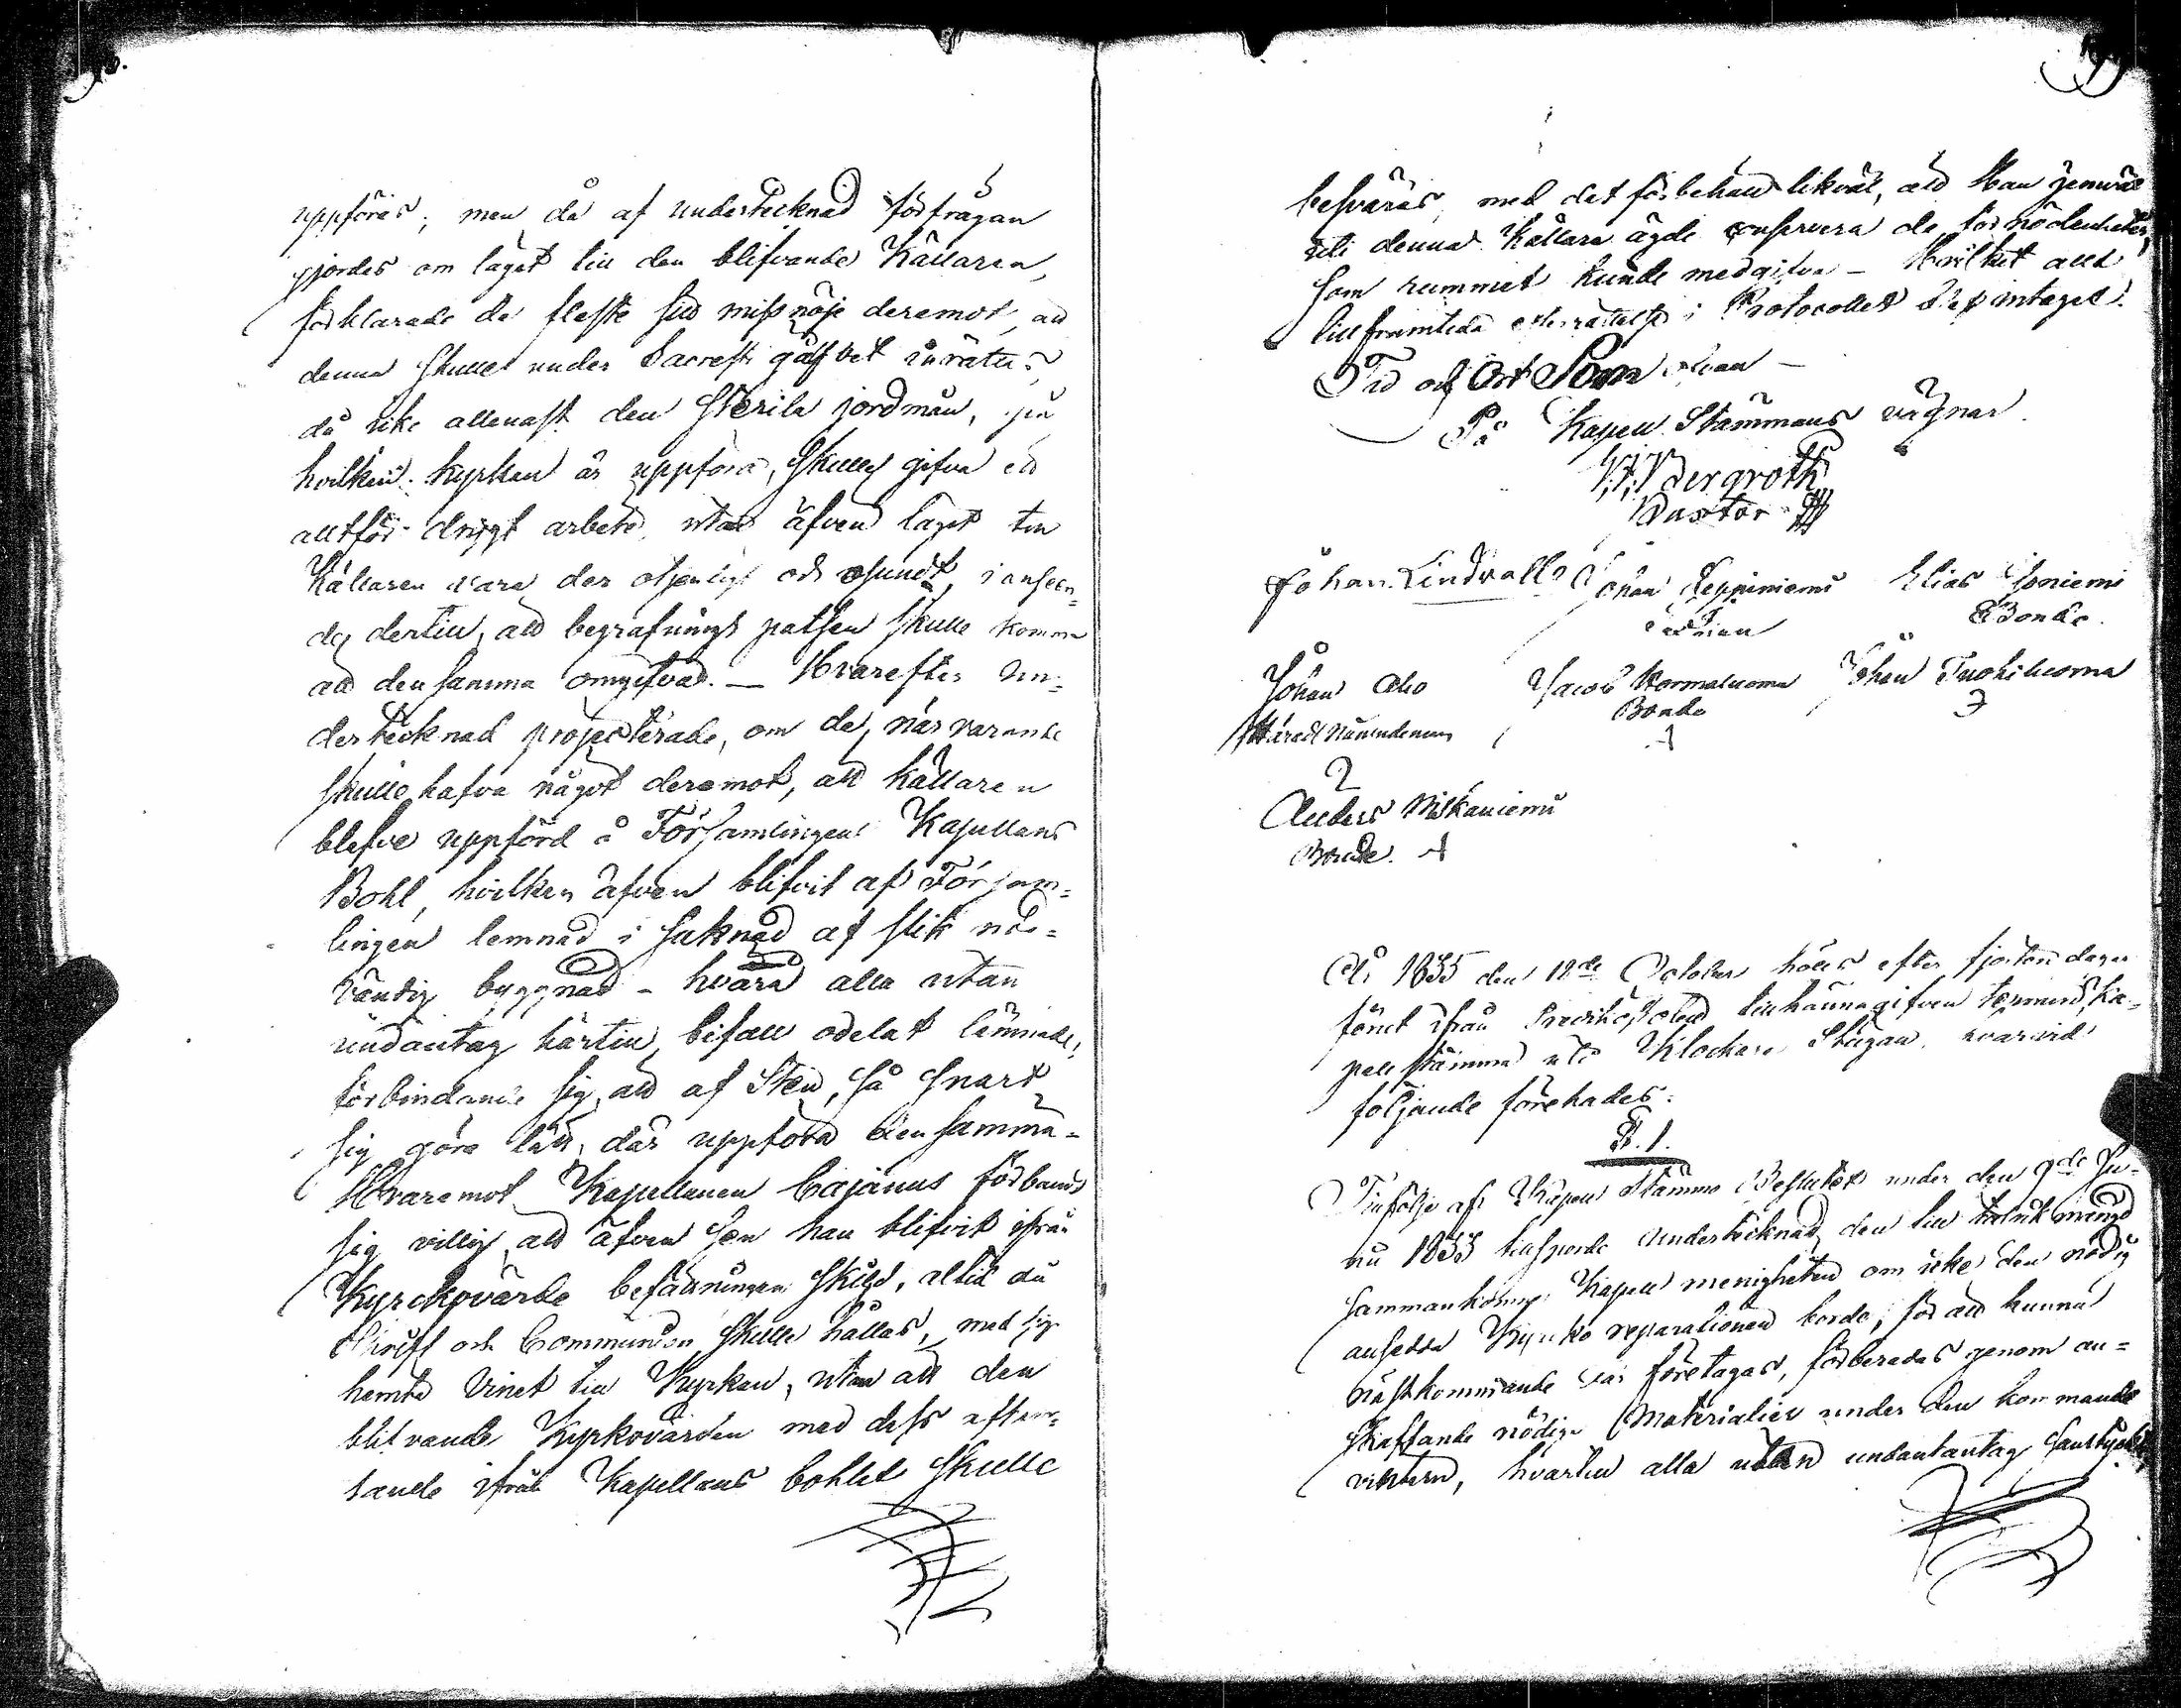 uppföras; men då af undertecknad förfrågan
gjordes om läget till den blifvande Källaren,
förklarade de fleste sitt missnöje deremot, att
denna skulle under Sacrestigålfvet inrättas,
då icke allenast den sterila jordmån, på
hvilken kyrkan är uppförd, skulle gifva ett
alltför drygt arbete, utan äfven läget för
Källaren vara der otjenligt och osundt, i anseen-
de dertill, att begrafnings platsen skulle komma
att densamma omgifva. — Hvarefter Un-
dertecknad projecterade, om de närvarande
skulle hafva något deremot, att källaren
blefve uppförd å Församlingens Kapellans
Bohl, hvilken äfven blifvit af Försam-
lingen lemnad i saknad af slik nöd-
vändig byggnad – hvartill alla utan
undantag härtill bifall odelat lämnade,
förbindande sig, att af Sten, så snart
sig göra lät, där uppföra densamma –
Hvaremot Kapellanen Cajanus förband
sig villig, att äfven sen han blifvit ifrån
Kyrckovärde befattningen skilgd, altid då
Skrift och Communion skulle hållas, med sig
hemta Vinet till Kyrkan, utan att den
blifvande Kyrkovärden med dess aftem-
tande ifrån Kapellans bohlet skulle
besväras, med det förbehåll likväl, att Han jemväl
uti denna Källare ägde conservera de förnödenheter,
som rummet kunde medgifva – Hvilket allt
till framtida efterrättelse i Protocollet blef intaget.
Tid och Ort Som ofvan —
På Kapell Stämmans vägnar
Bergroth
Pastor
Johan Lindvall Johan Seppiniemi Elias Honiemi
Bonde.
Johan Aho Jacob Wormaluoma Johan Tuohiluoma
Härads Nämndeman Bonde
Anders Niskaniemi
Bonde.
År 1835 den 18de October hölls efter fjorton dagar
förut ifrån Predikostolen tillkännagifven termin, Ka-
pellstämma uti Klockare Stugan, hvarvid
följande förehades:
§. 1.
Tillfölje af Kapell Stämmo Beslutet under den 7de Ju-
nii 1835 tillsporde Undertecknad, den till talrik mängd
sammankomne Kapell menigheten om icke den nödig
ansedda Kyrko reparationen borde, för att kunna
nästkommande vår företagas, förberedas genom an-
skaffande nödige Materialier under den kommande
vintern, hvartill alla utan undantantag samtyckte,